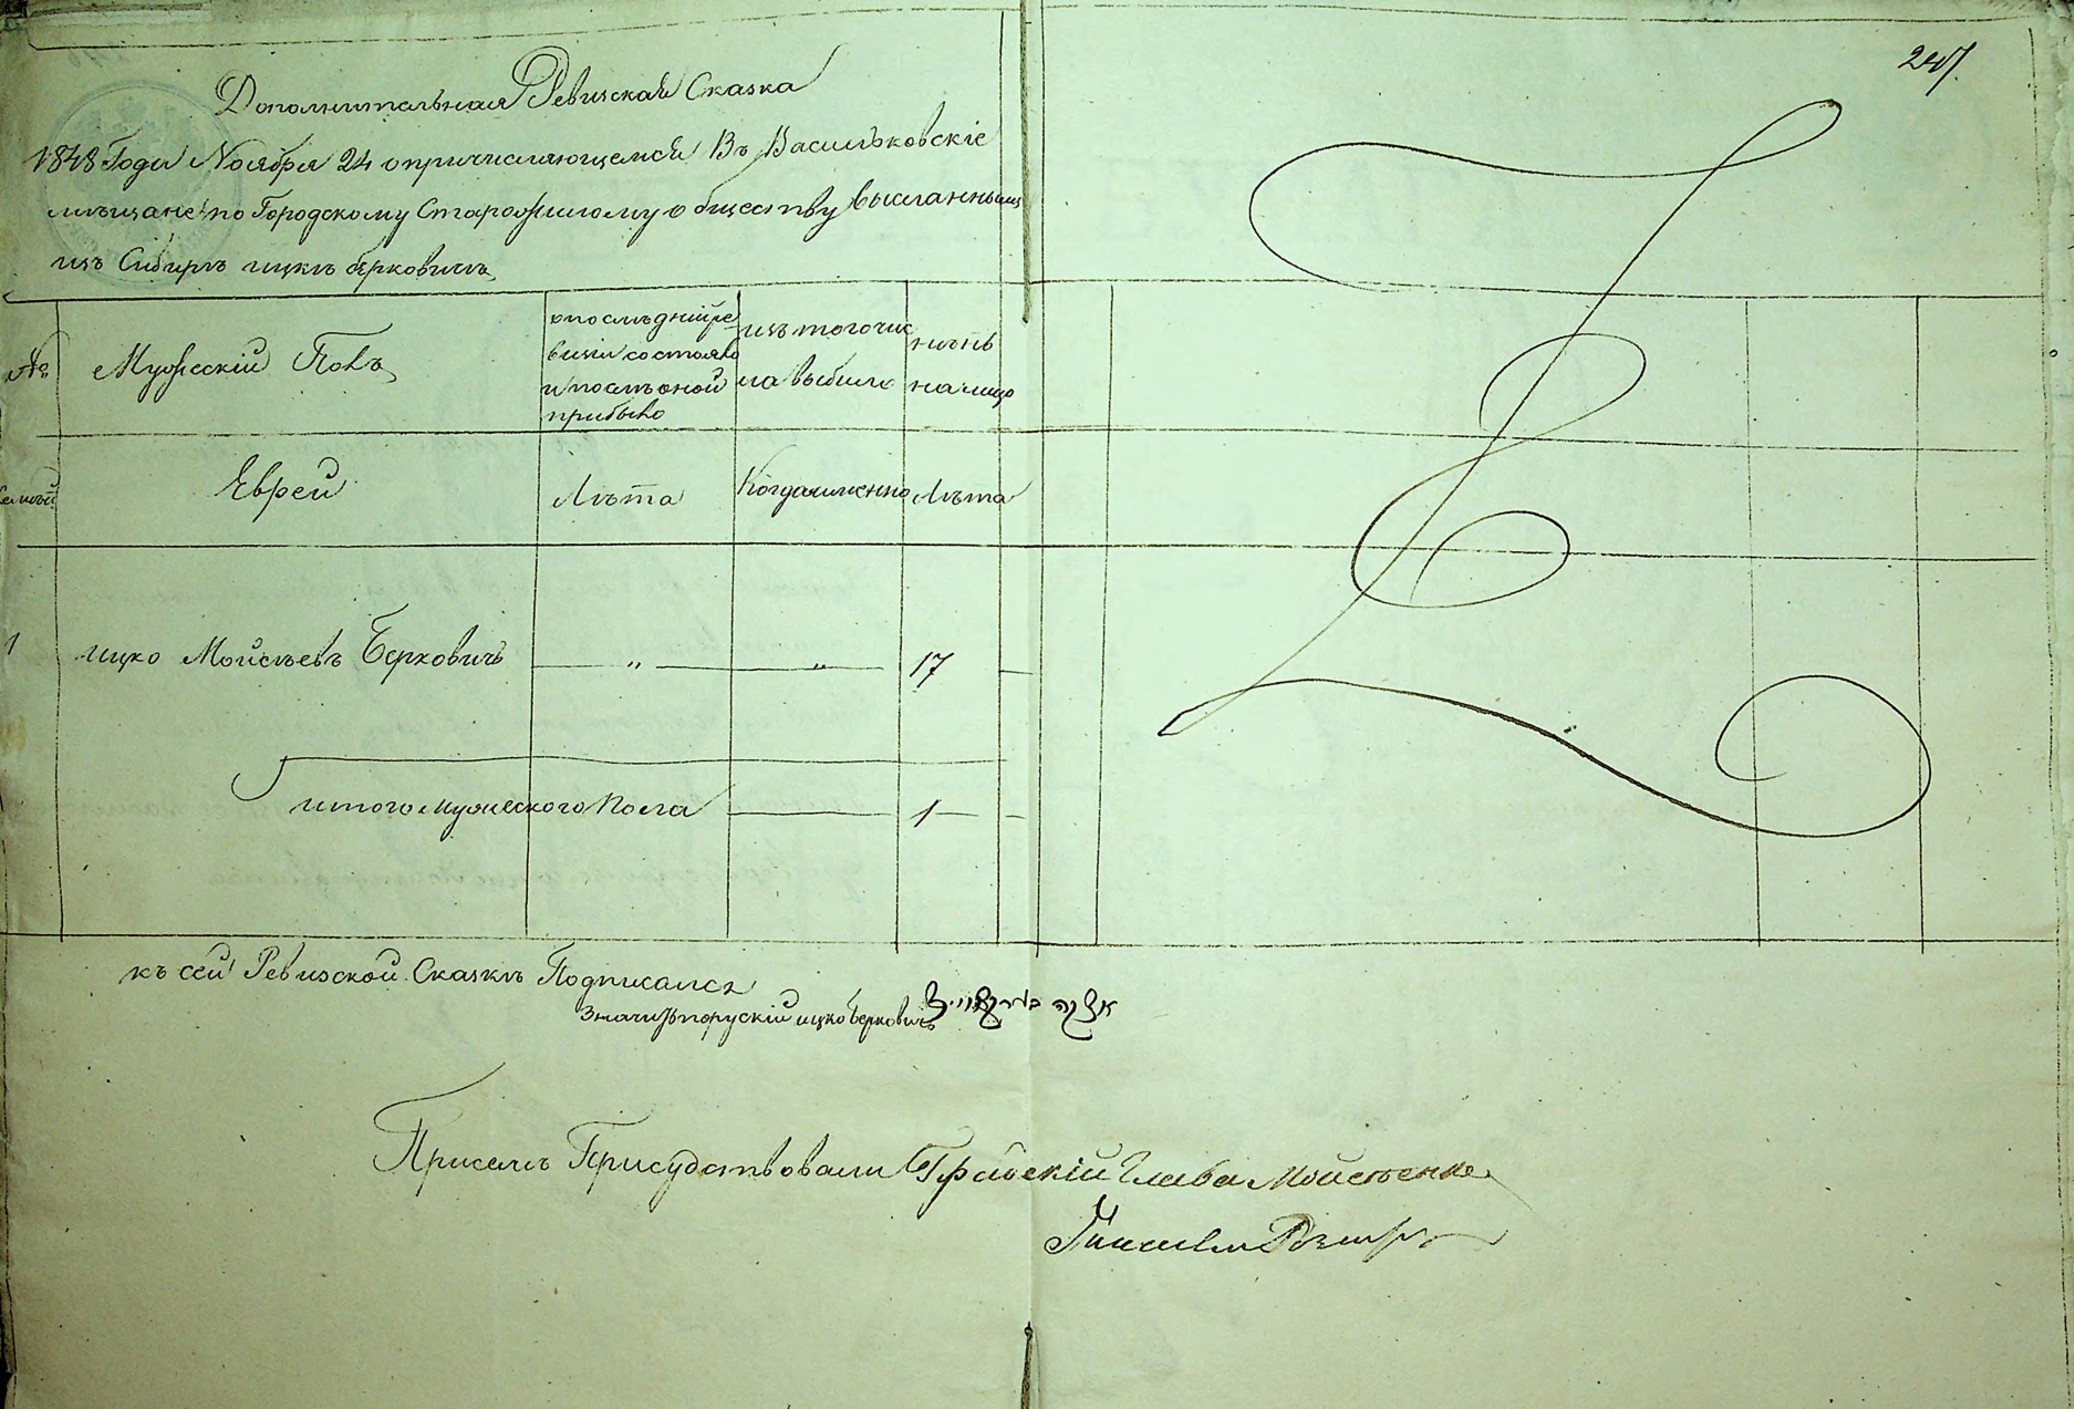 Дополнительная Ревизская Сказка
1848 Года Ноября 24 о причисляющемся Въ Васильковскіе
мѣщане по Городскому Старожилому обществу высланнымъ
изъ Сибири ицкѣ берковичѣ
№ Мужескій Полъ
по послѣдній ре
визіи состояло
и послѣ оной
прибыло
изъ того чис
ла выбыло
нынѣ
на лицо
семьи Еврей Лѣта Когда именно Лѣта
1 ицко Мойсѣевъ Берковичъ — " — " — 17 —
итого мужеского пола — 1 —
къ сей Ревизской Сказкѣ Подписался
איצקה בערקאוויץ
значитъ порускій ицко Берковичъ
При семъ Присудствовали Градскій Глава Мойсѣенко